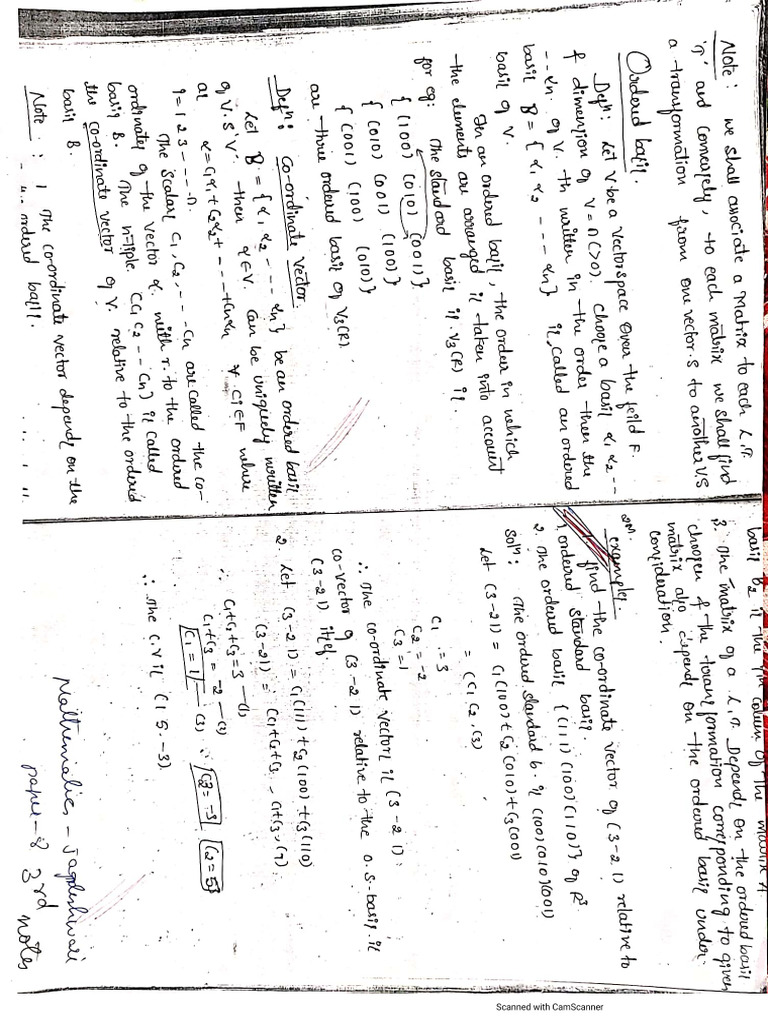 Note : we shall associate a Matrix to each L.T.
'T' and conversely, to each matrix we shall find
a transformation from one vector.s to another VS
Ordered basis.
Defn: Let V be a vectorspace over the feild F.
& dimension of V = n (>0). choose a basis α1 α2 --
-- αn. of V. written in the order then the
basis B = { α1 α2 --- αn} is called an ordered
basis of V.
In an ordered basis, the order in which
the elements are arranged is taken into account
for eg: The standard basis is V3(R) is.
{ (100) (010) (001)}
{ (010) (001) (100)}
{ (001) (100) (010)}
are three ordered basis of V3(R).
Defn: Co-ordinate Vector.
Let B = {α1 α2 --- αn} be an ordered basis
of V.S V. then α∈V. can be uniquely written
as α = C1α1 + C2α2 + --- + Cnαn ∀ Ci∈F where
i = 1 2 3 --- n.
The scalars C1, C2, --- Cn are called the co-
ordinates of the vector α. with r. to the ordered
basis B. The n-tiple (C1 C2 -- Cn) is called
the co-ordinate vector of V. relative to the ordered
basis B.
Note : 1 The co-ordinate vector depends on the
ordered basis.
basis B2 is the column of the matrix A.
3. The matrix of a L.T. Depends on the ordered basis
choosen & the transformation corresponding to given
matrix also depends on the ordered basis under
consideration.
2M. example.
find the co-ordinate vector of (3 -2 1) relative to
1. ordered standard basis.
2. The ordered basis { (111) (100) (110)} of R3
Soln: The ordered standard b. is (100) (010) (001)
Let (3 -2 1) = C1(100) + C2(010) + C3(001)
= (C1 C2, C3)
C1 = 3
C2 = -2
C3 = 1
∴ The co-ordinate vector is (3 -2 1).
co-vector of (3 -2 1) relative to the o.s. basis. is
(3 -2 1) itself
2. Let (3 -2 1) = C1(111) + C2(100) + C3(110)
(3 -2 1) = (C1+C2+C3, C1+C3, C1).
∴ C1+C2+C3 = 3 —(1)
C1+C3 = -2 —(2)
C1 = 1 — (3) ∴ C3 = -3 C2 = 5
∴ The C.V is (1 5 -3).
Mathematics - Jagadeshwari
paper-8 3rd
notes
Scanned with CamScanner